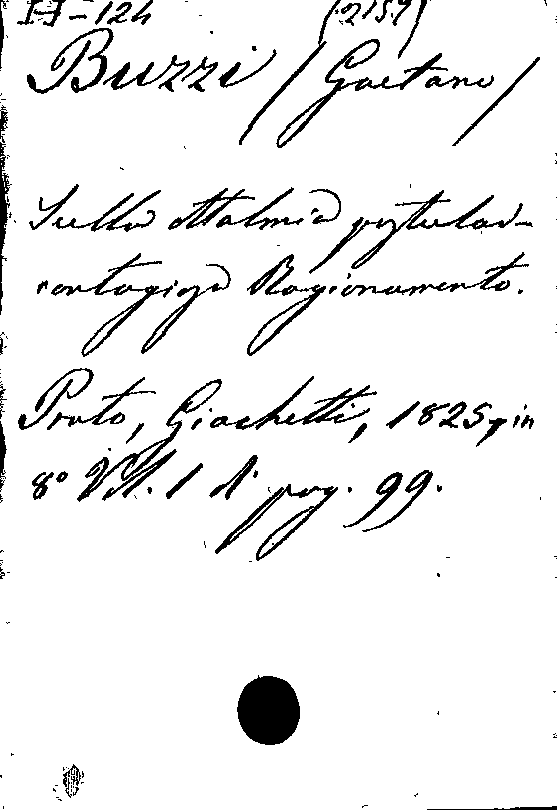 H-124 (2157)
Buzzi / Gaetano /
Sulla ottalmia pustular-
contagiosa Ragionamento.
Prato, Giachetti, 1825, in
8º Vol. 1 di pag. 99.